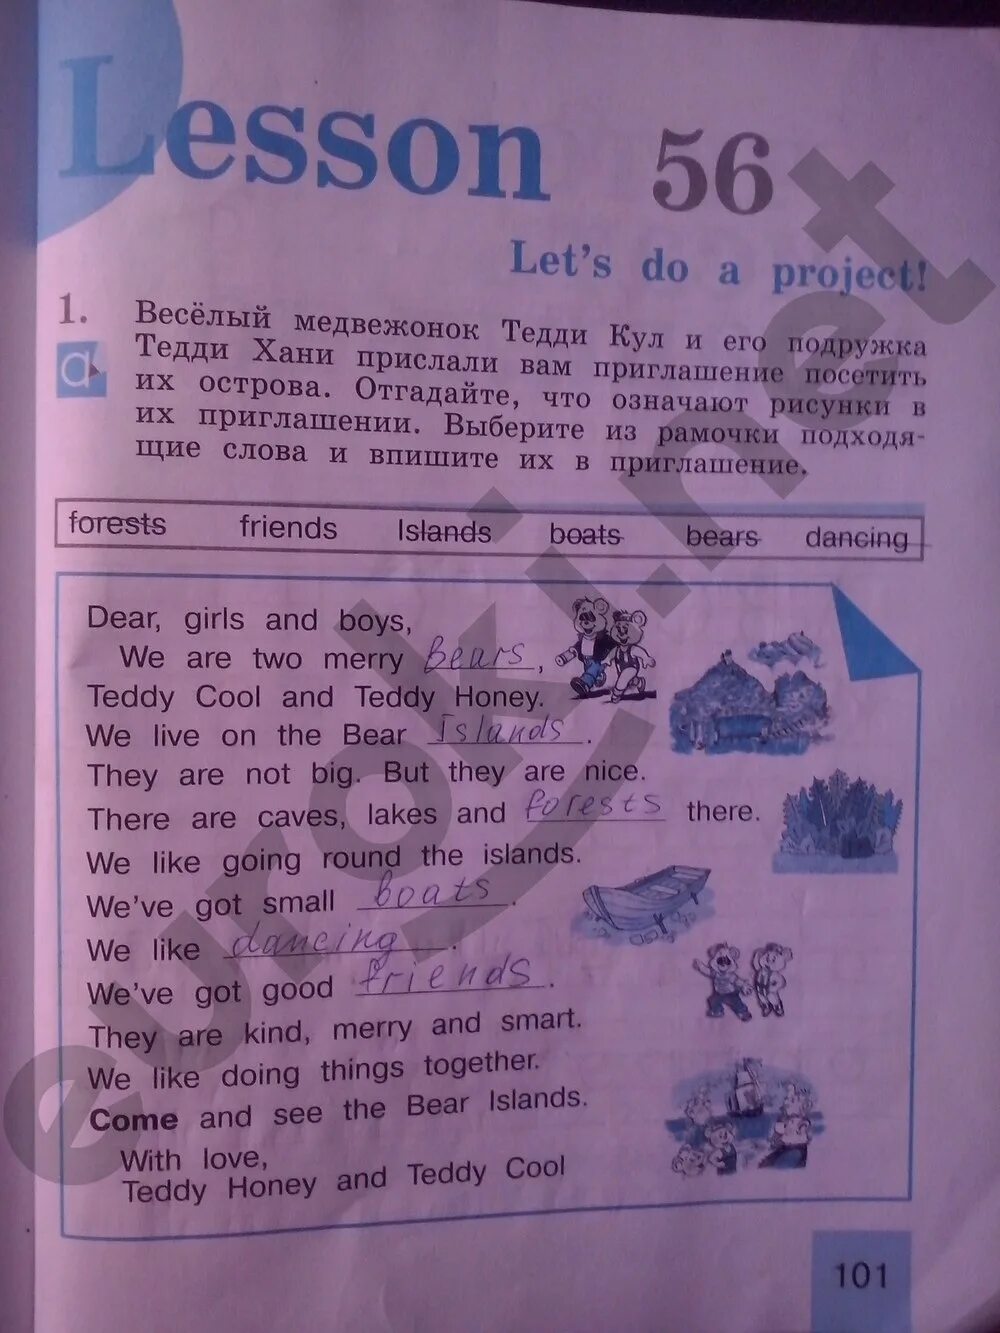 Lesson 56
Let's do a project!
1. Весёлый медвежонок Тедди Кул и его подружка
Тедди Хани прислали вам приглашение посетить
их острова. Отгадайте, что означают рисунки в
их приглашении. Выберите из рамочки подходя-
щие слова и впишите их в приглашение.
a
forests friends Islands boats bears dancing
Dear, girls and boys,
We are two merry bears,
Teddy Cool and Teddy Honey.
We live on the Bear Islands.
They are not big. But they are nice.
There are caves, lakes and forests there.
We like going round the islands.
We've got small boats.
We like dancing.
We've got good friends.
They are kind, merry and smart.
We like doing things together.
Come and see the Bear Islands.
With love,
Teddy Honey and Teddy Cool
101
euroki.net